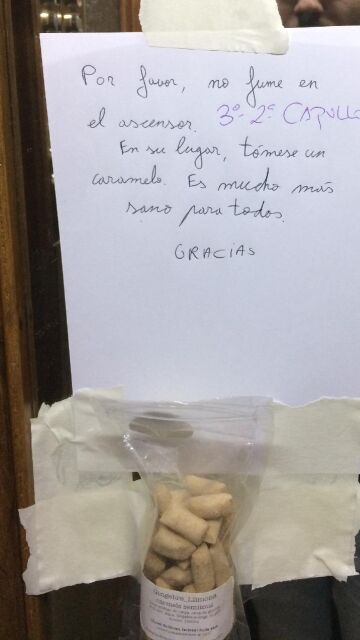 Por favor, no fume en
el ascensor. 3º-2ª CAPULLO
En su lugar, tómese un
caramelo. Es mucho más
sano para todos.
GRACIAS
Gingebre, Llimona